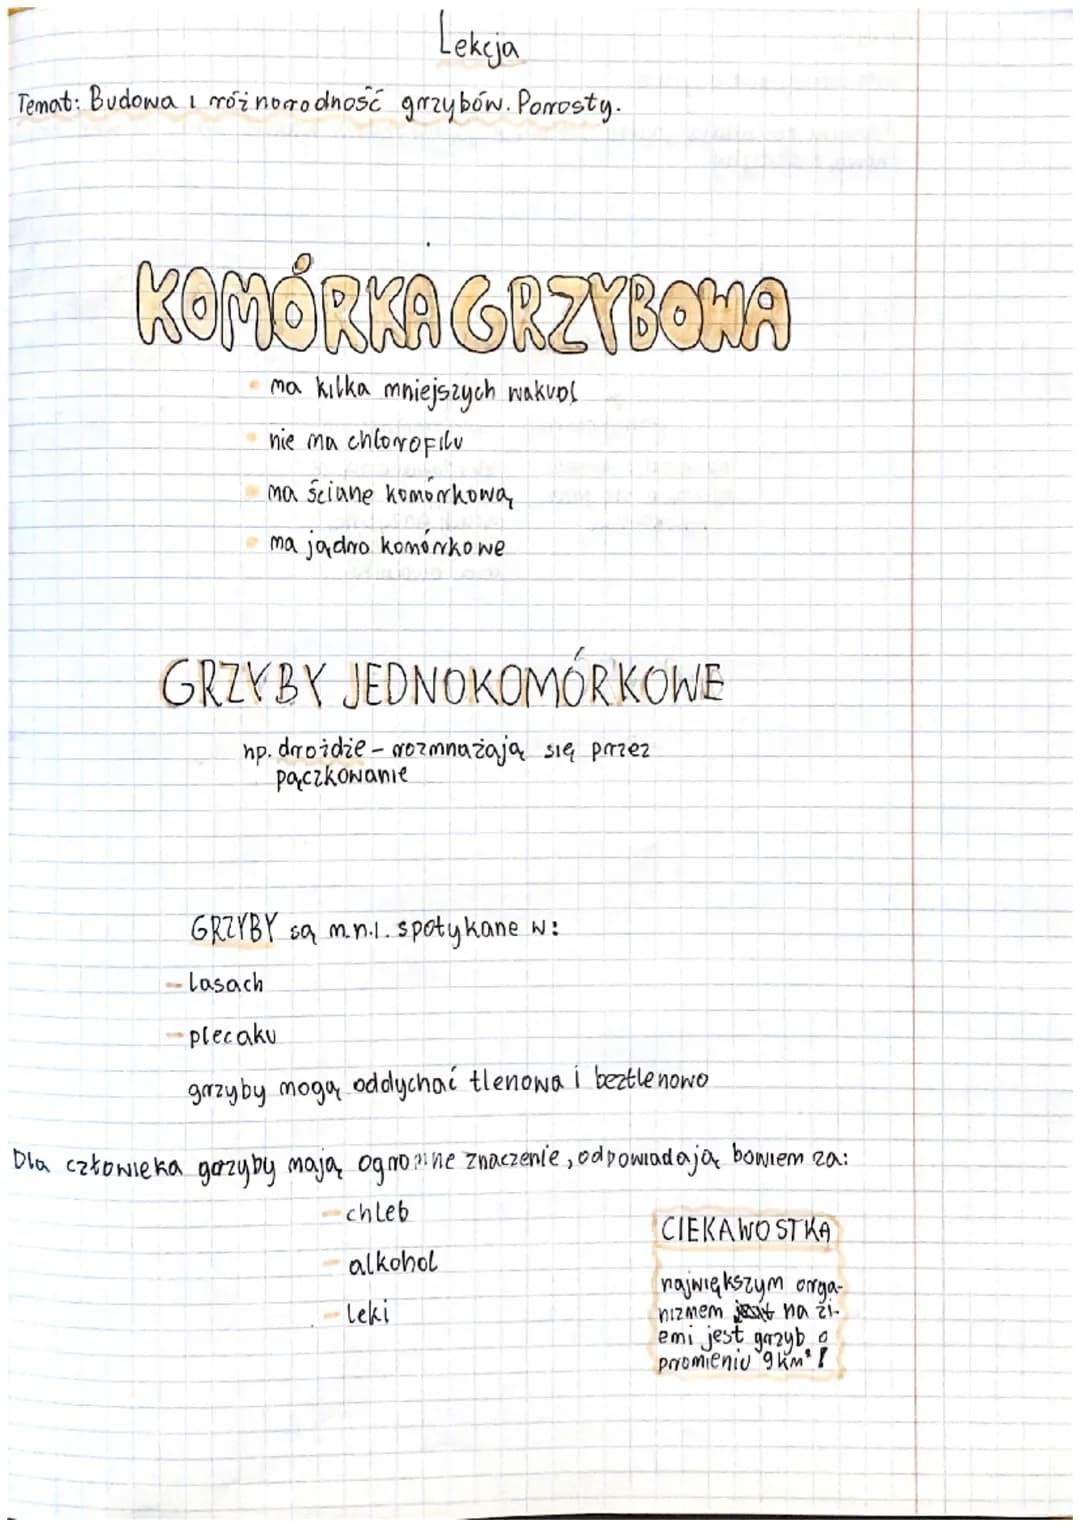 Lekcja
Temat: Budowa i różnorodność grzybów. Porosty.
KOMÓRKA GRZYBOWA
• ma kilka mniejszych wakuol
• nie ma chlorofilu
• ma ścianę komórkową
• ma jądro komórkowe
GRZYBY JEDNOKOMÓRKOWE
np. drożdże - rozmnażają się przez
pączkowanie
GRZYBY są m.n.i. spotykane w:
- lasach
- plecaku
grzyby mogą oddychać tlenowa i beztlenowo
Dla człowieka grzyby mają ogromne znaczenie, odpowiadają bowiem za:
- chleb
- alkohol
- leki
CIEKAWOSTKA
największym orga-
nizmem na zi-
emi jest grzyb o
promieniu 9 km² !